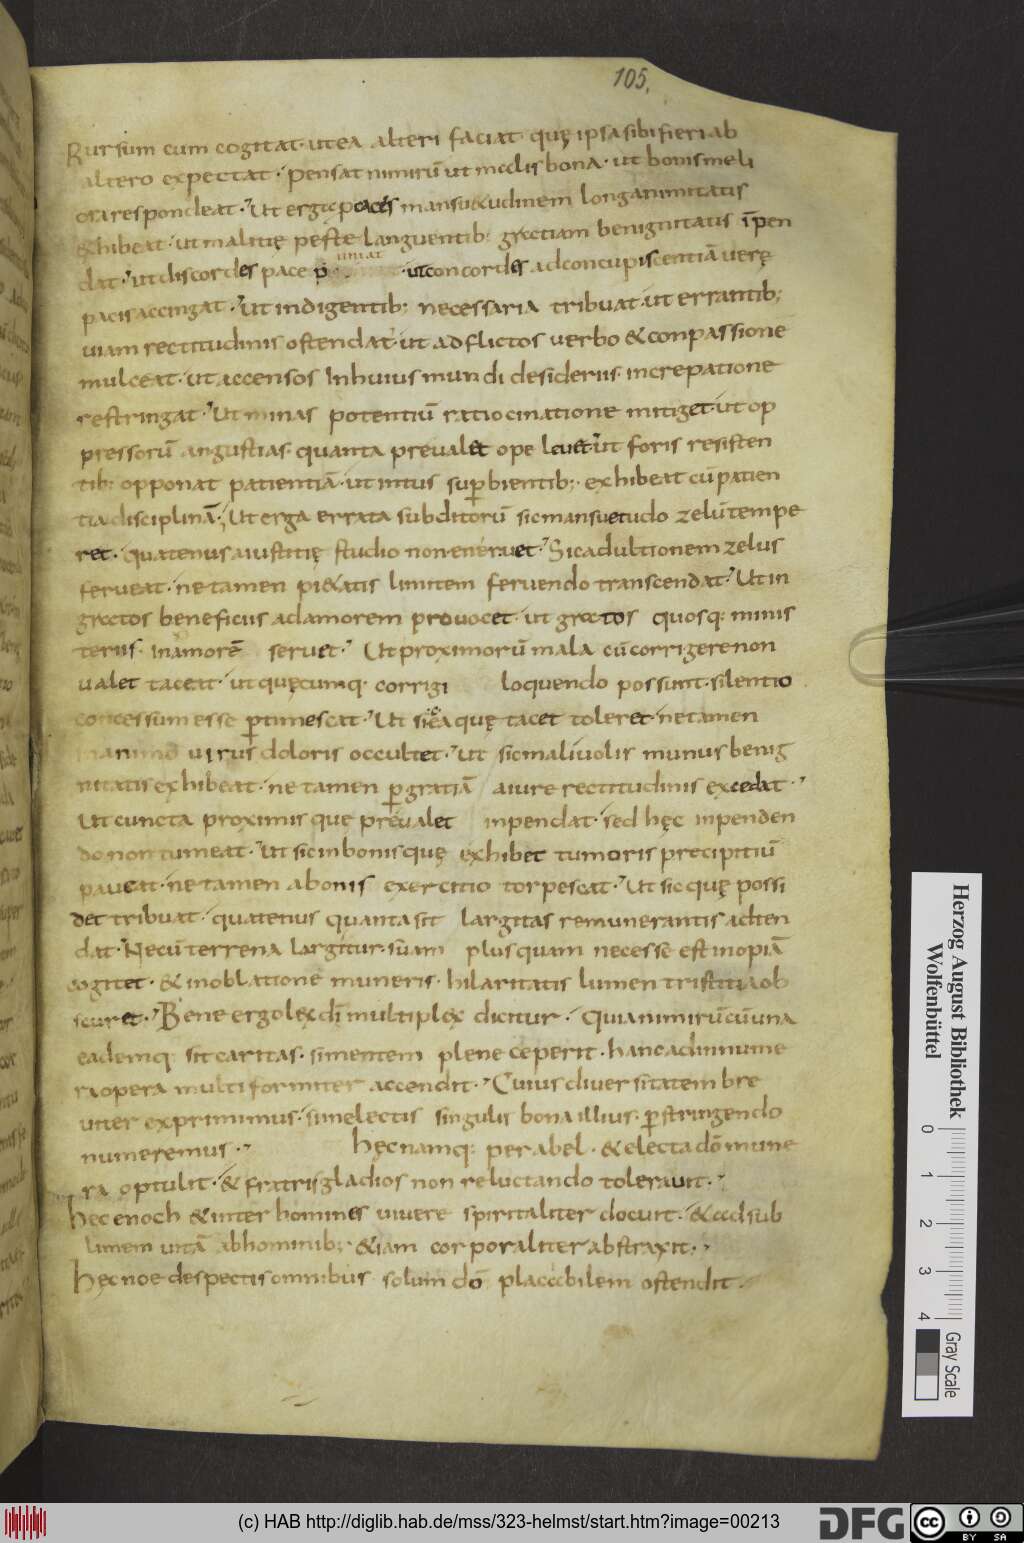 105.
Rursum cum cogitat· ut ea alteri faciat quę ipsa sibi fieri ab
altero expectat· Pensat nimirū ut malis bona· ut bonis meli
ora respondeat· Ut erga pacēs mansu&udinem longanimitatis
&hibeat· ut malitię peste languentib; gratiam benignitatis īpen
dat· ut discordes pace p ut concordes ad concupiscentiā verę
pacis accingat· Ut indigentib; necessaria tribuat· ut errantib;
viam rectitudinis ostendat· ut adflictos verbo & conpassione
mulceat· ut accensos In huius mundi desideriis increpatione
restringat· Ut minas potentiū ratiocinatione mitiget· ut op
pressorū angustias· quanta prevalet ope levet· ut foris resisten
tib; opponat patientiā· ut intus superbientib;· exhibeat cū patien
tia disciplinā· Ut erga errata subditorū sic mansuetudo zelū tempe
ret· quatenus a iustitię studio non enervet· Sic ad ultionem zelus
ferveat· ne tamen pi&atis limitem fervendo transcendat· Ut in
gratos beneficiis ad amorem provocet· ut gratos quosq; minis
teriis· in amorē servet· Ut proximorū mala cū corrigere non
valet taceat· ut quęcumq; corrigi loquendo possunt· silentio
concessum esse ptimescat· Ut sic ea quę tacet toleret· ne tamen
in animo virus doloris occultet· ut sic malivolis munus benig
nitatis exhibeat· ne tamen p gratiā a iure rectitudinis excedat·
Ut cuncta proximis que prevalet inpendat· sed hęc inpenden
do non tumeat· Ut sic in bonis quę exhibet tumoris precipitiū
paveat· ne tamen a bonis exercitio torpescat· Ut sic quę possi
det tribuat· quatenus quanta sit largitas remunerantis adten
dat· Ne cū terrena largitur· suam plus quam necesse est inopiā
cogitet· & in oblatione muneris· hilaritatis lumen tristitia ob
scuret· Bene ergo lex dī multiplex dicitur· Quia nimirū cū una
eademq; sit caritas· si mentem plene ceperit· hanc ad innume
ra opera multiformiter accendit· Cuius diversitatem bre
viter exprimimus· si in electis singulis bona illius· pstringendo
numeremus· Hęc namq; per abel· & electa dō mune
ra optulit· & fratris gladios non reluctando toleravit·
Hęc enoch & inter homines vivere spiritaliter docuit· & ad sub
limem vitā ab hominib; &iam corporaliter abstraxit·
Hęc noe despectis omnibus solum dō placabilem ostendit·
Herzog August Bibliothek
Wolfenbüttel
0 1 2 3 4
Gray Scale
(c) HAB http://diglib.hab.de/mss/323-helmst/start.htm?image=00213
DFG
cc BY SA